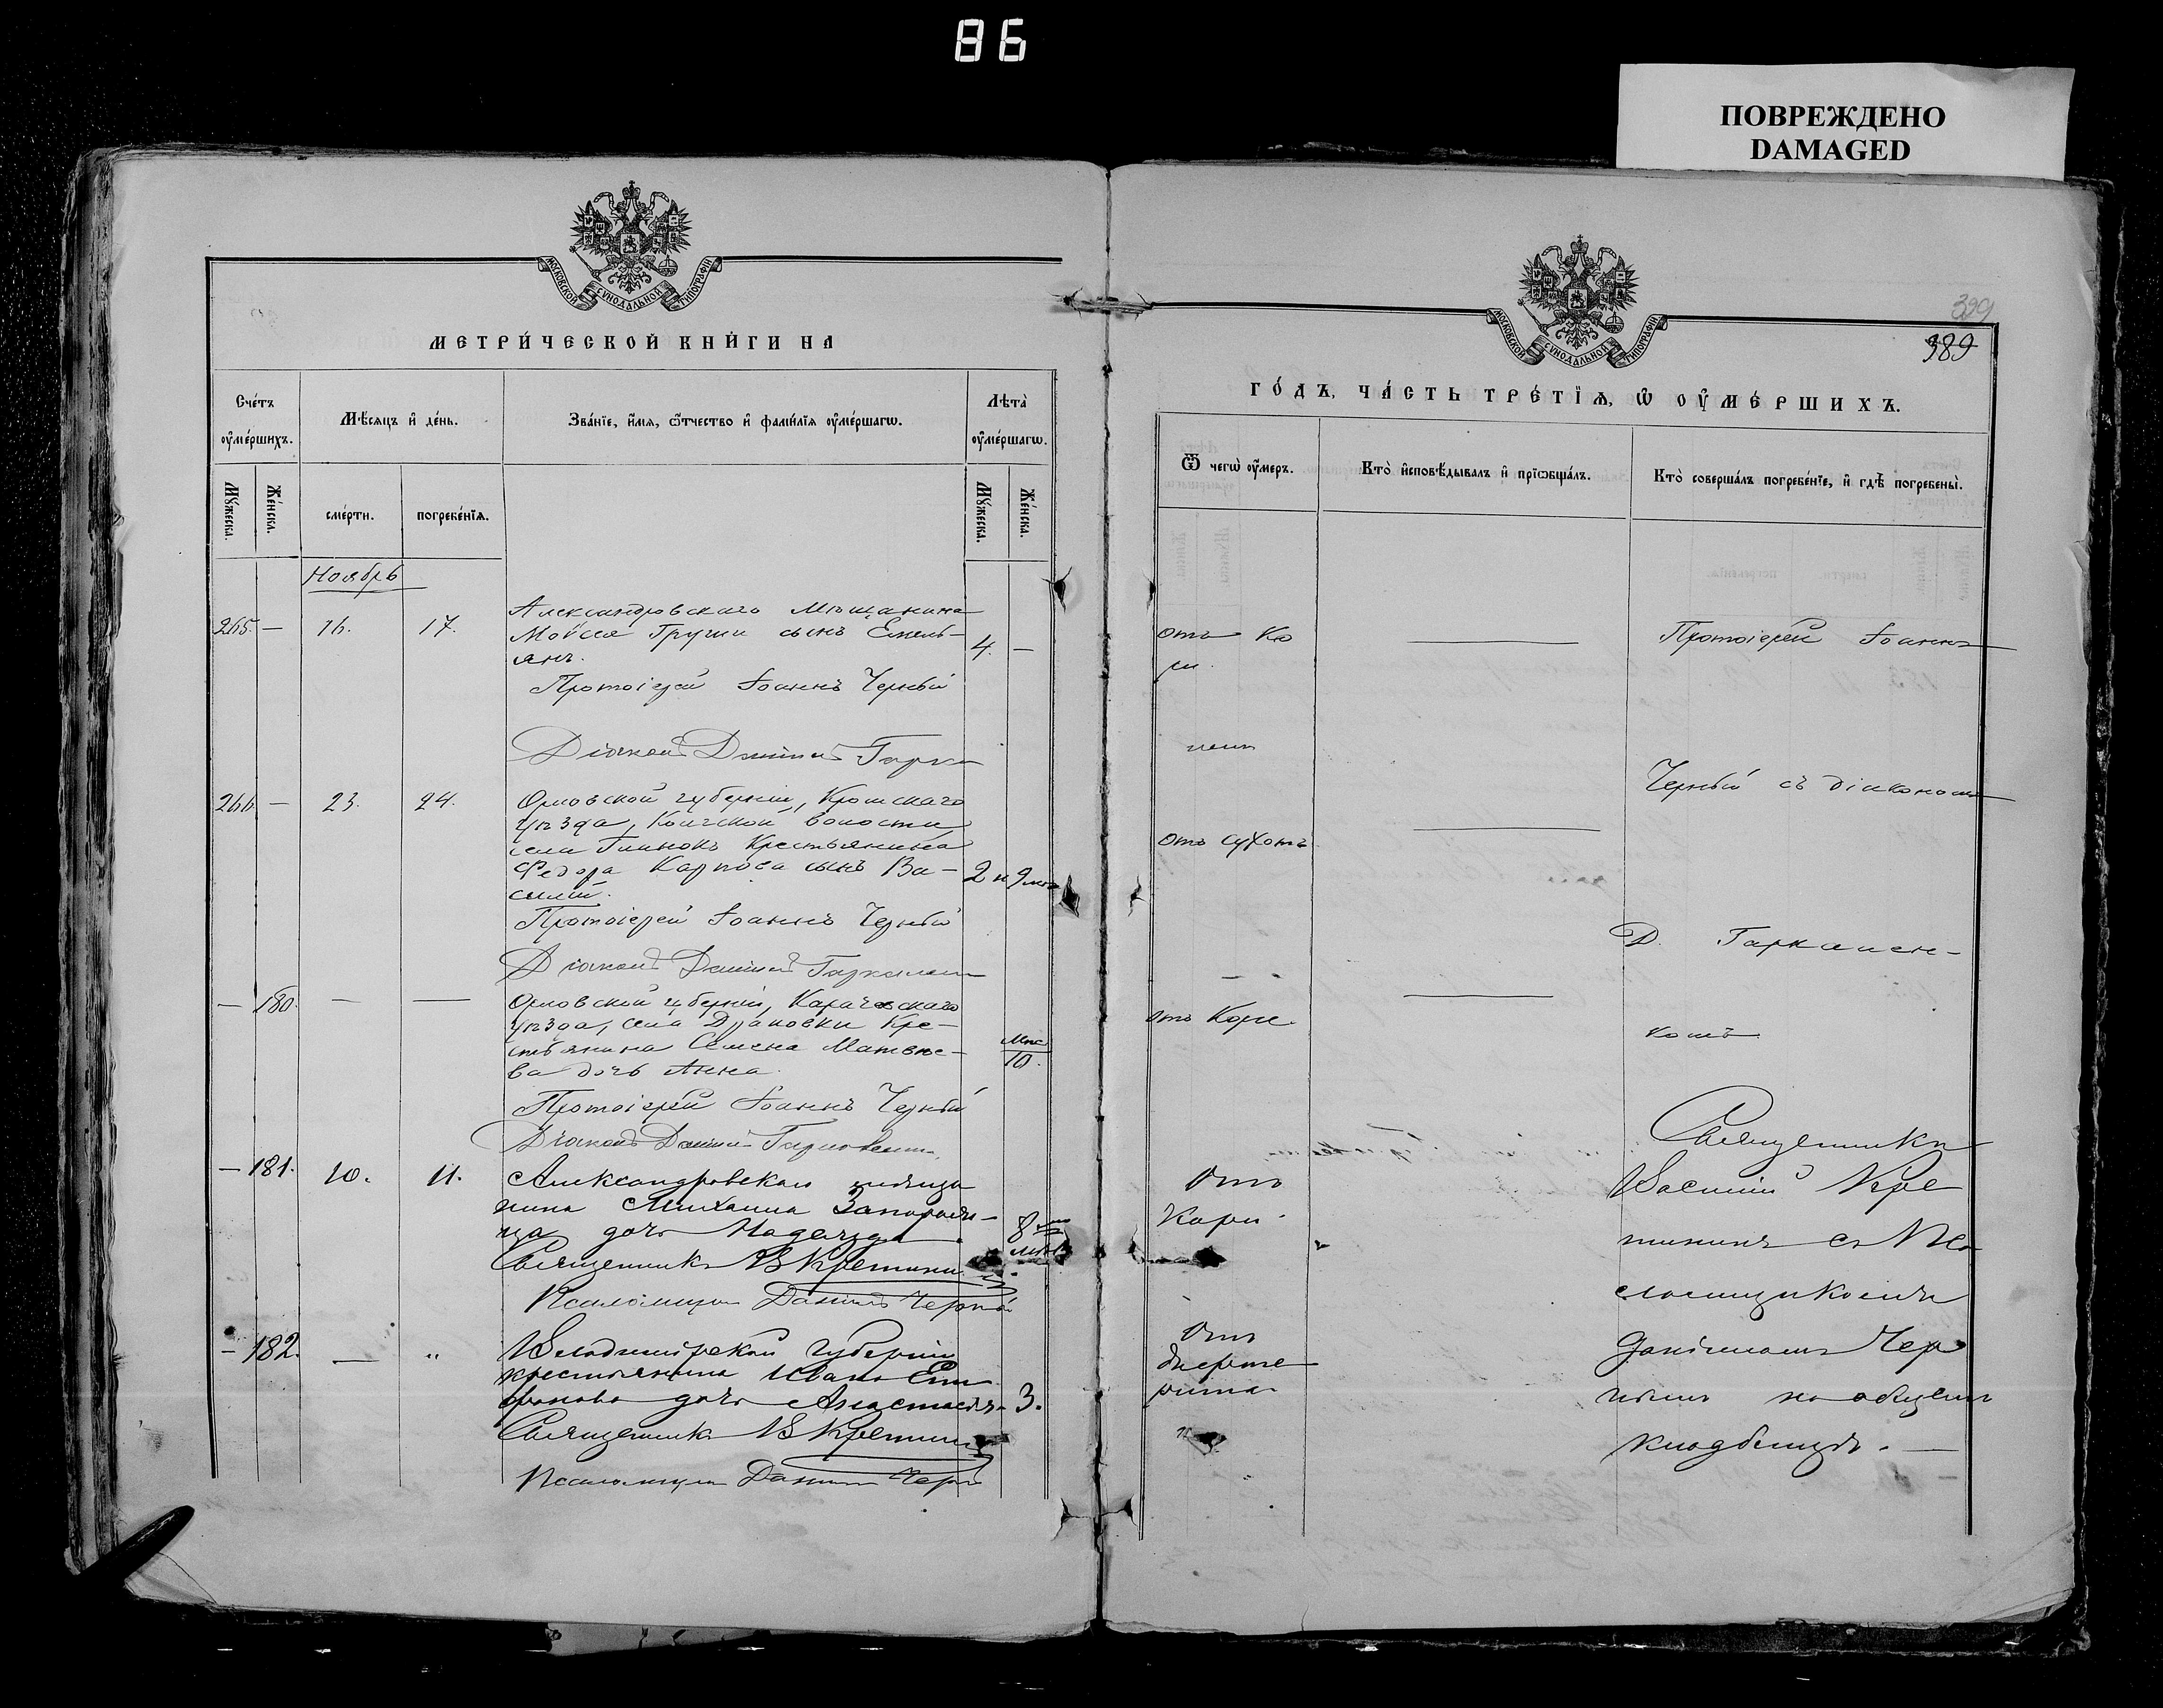 86
ПОВРЕЖДЕНО
DAMAGED
МОСКОВСКОЙ СУНОДАЛЬНОЙ ТИПОГРАФІИ
МЕТРИ́ЧЕСКОЙ КНИ́ГИ НА
Сче́тъ оу҆ме́ршихъ.
Мѣ́сяцъ и҆ де́нь.
Зва́нїе, и҆́мя, ѻ҆́тчество и҆ фами́лїя оу҆ме́ршагѡ.
Лѣта̀ оу҆ме́ршагѡ.
Мꙋ́жеска.
Же́нска.
сме́рти.
погребе́нїѧ.
Мꙋ́жеска.
Же́нска.
Ноябрь
265. — 16. 17.
Александровскаго Мѣщанина
Моѵсея Груши сынъ Емель-
янъ.
4. —
Протоіерей Іоаннъ Черный
Діаконъ Даніилъ
266 — 23. 24.
Орловской губерніи, Кромскаго
уѣзда, волости,
села Крестьянина
Федора Карпова сынъ Ва-
силій.
2 и 9 мѣ
Протоіерей Іоаннъ Черный
Діаконъ Даніилъ
— 180. — —
Орловской губерніи, Карачевскаго
уѣзда, села Кре-
стьянина Семена Матвѣе-
ва дочь Анна.
Мѣс
10.
Протоіерей Іоаннъ Черный
Діаконъ Даніилъ
— 181. 10. 11.
Александровскаго мѣща
нина Михаила Запорож-
ца дочь Надежда.
8
Священникъ В Кремянин
Псаломщикъ Даніилъ Черный
— 182. — "
Владимірской губерніи
крестьянина Ивана
дочь Анастасія
3.
Священникъ В
Псаломщикъ Даніилъ Черн
МОСКОВСКОЙ СУНОДАЛЬНОЙ ТИПОГРАФІИ
399
389
ГО́ДЪ, ЧА́СТЬ ТРЕ́ТЇѦ, Ѡ҆ ОУ҆МЕ́РШИХЪ.
Ѿ чегѡ̀ оу҆́меръ.
Кто̀ и҆сповѣ́дывалъ и҆ прїѡбща́лъ.
Кто̀ соверша́лъ погребе́нїе, и҆ гдѣ̀ погребены̀.
отъ Ко
ри.
—
Протоіерей Іоаннъ
Черный съ діакономъ
отъ сухотъ
—
Д. Гаркавен-
отъ Кори.
—
комъ
Священникъ
Отъ
Кори.
Василій Кре
съ Пса
ломщикомъ
Отъ
дифте
рита
Даніиломъ Чер
нымъ на общемъ
кладбищѣ. —